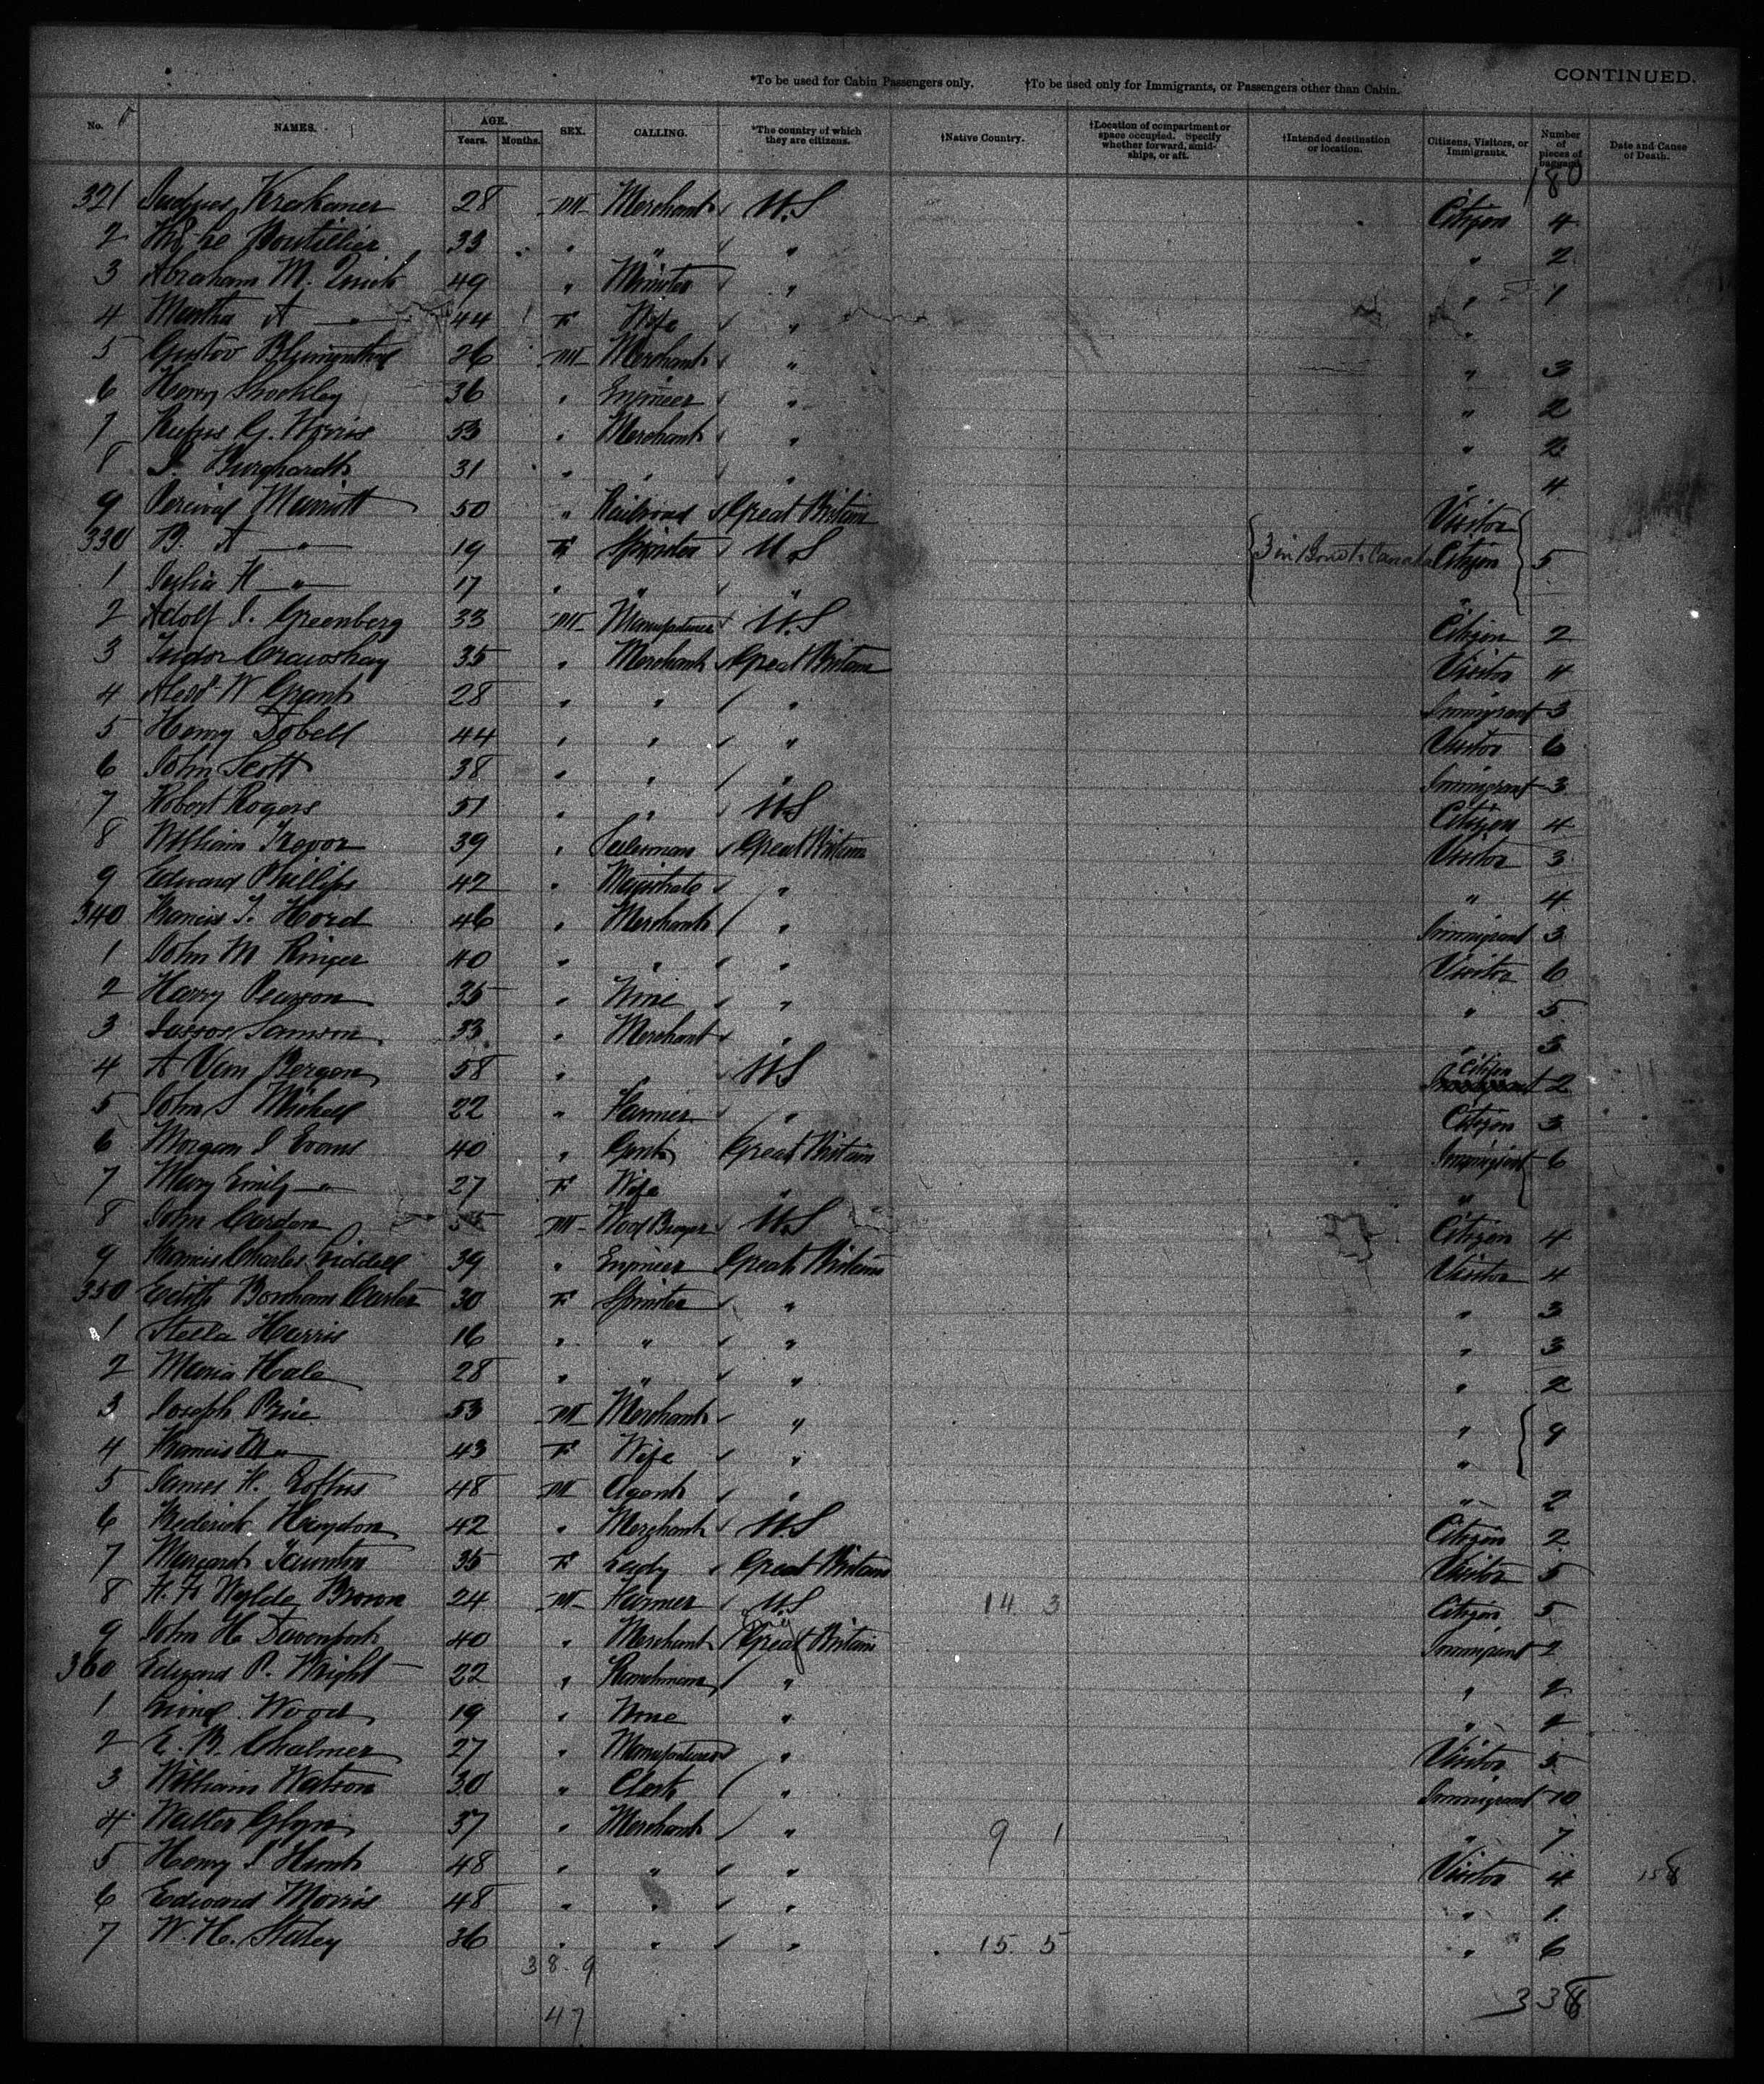 CONTINUED.
*To be used for Cabin Passengers only. †To be used only for Immigrants, or Passengers other than Cabin.
No. NAMES. AGE. Years. Months. SEX. CALLING. *The country of which they are citizens. †Native Country. †Location of compartment or space occupied. Specify whether forward, amidships, or aft. †Intended destination or location. Citizens, Visitors, or Immigrants. Number of pieces of baggage Date and Cause of Death.
180
321 Krakaner 28 M Merchant U.S Citizen 4
2 Boutillier 33 " " " " 2
3 Abraham M. Quick 49 " Minister " " 1
4 Martha A " 44 F Wife " "
5 Gustav Blumenthal 26 M Merchant " " 3
6 Henry Shockley 36 " Engineer " " 2
7 Rufus G. Norris 53 " Merchant " " 2
8 Burghardt 31 " " " " 4
9 Percival Marriott 50 " Railroad Great Britain Visitor
330 B. A " 19 F Spinster U.S 3 in Bond to Canada Citizen 5
1 H " 17 " " " "
2 Adolf I. Greenberg 33 M Manufacturer U.S Citizen 2
3 Tudor Crawshay 35 " Merchant Great Britain Visitor 4
4 W Grant 28 " " " Immigrant 3
5 Henry Dobell 44 " " " Visitor 6
6 John Scott 38 " " " Immigrant 3
7 Robert Rogers 51 " " U.S Citizen 4
8 William Trevor 39 " Salesman Great Britain Visitor 3
9 Edward Phillips 42 " Magistrate " " 4
340 Francis T. Hord 46 " Merchant " Immigrant 3
1 John M Ringer 40 " " " Visitor 6
2 Harry Pearson 35 " Wine " " 5
3 Samson 33 " Merchant " " 3
4 A Van Bergen 58 " U.S Citizen 2
5 John S Michell 22 " Farmer " Citizen 3
6 Morgan I Evans 40 " Gent Great Britain Immigrant 6
7 Mary Emily " 27 F Wife " "
8 John Cardon M U.S Citizen 4
9 Francis Charles Liddell 39 " Engineer Great Britain Visitor 4
350 Edith Bonham Carter 30 F Spinster " " 3
1 Stella Harris 16 " " " " 3
2 Maria Hale 28 " " " " 2
3 Joseph Price 53 M Merchant " " 9
4 Francis M " 43 F Wife " "
5 James H. Loftus 48 M Agent " " 2
6 Frederick Haydon 42 " Merchant U.S Citizen 2
7 Margaret Taunton 35 F Lady Great Britain Visitor 5
8 H. H Wylde Brown 24 M Farmer U.S 14 3 Citizen 5
9 John H Davenport 40 " Merchant Great Britain Immigrant 2
360 Edward P. Wright 22 " Ranchman " " 2
1 Wood 19 " None " " 2
2 E. B. Chalmer 27 " Manufacturer " Visitor 5
3 William Watson 30 " Clerk " Immigrant 10
4 Walter Glynn 37 " Merchant " 9 1 " 7
5 Henry I Hunt 48 " " " Visitor 4 158
6 Edward Morris 48 " " " " 1
7 W. H. Staley 36 " " " 15 5 " 6
38 9
47
338